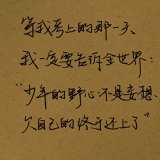 等我考上的那一天
我一定要告诉全世界：
“少年的野心不是妄想，
欠自己的终于还上了”